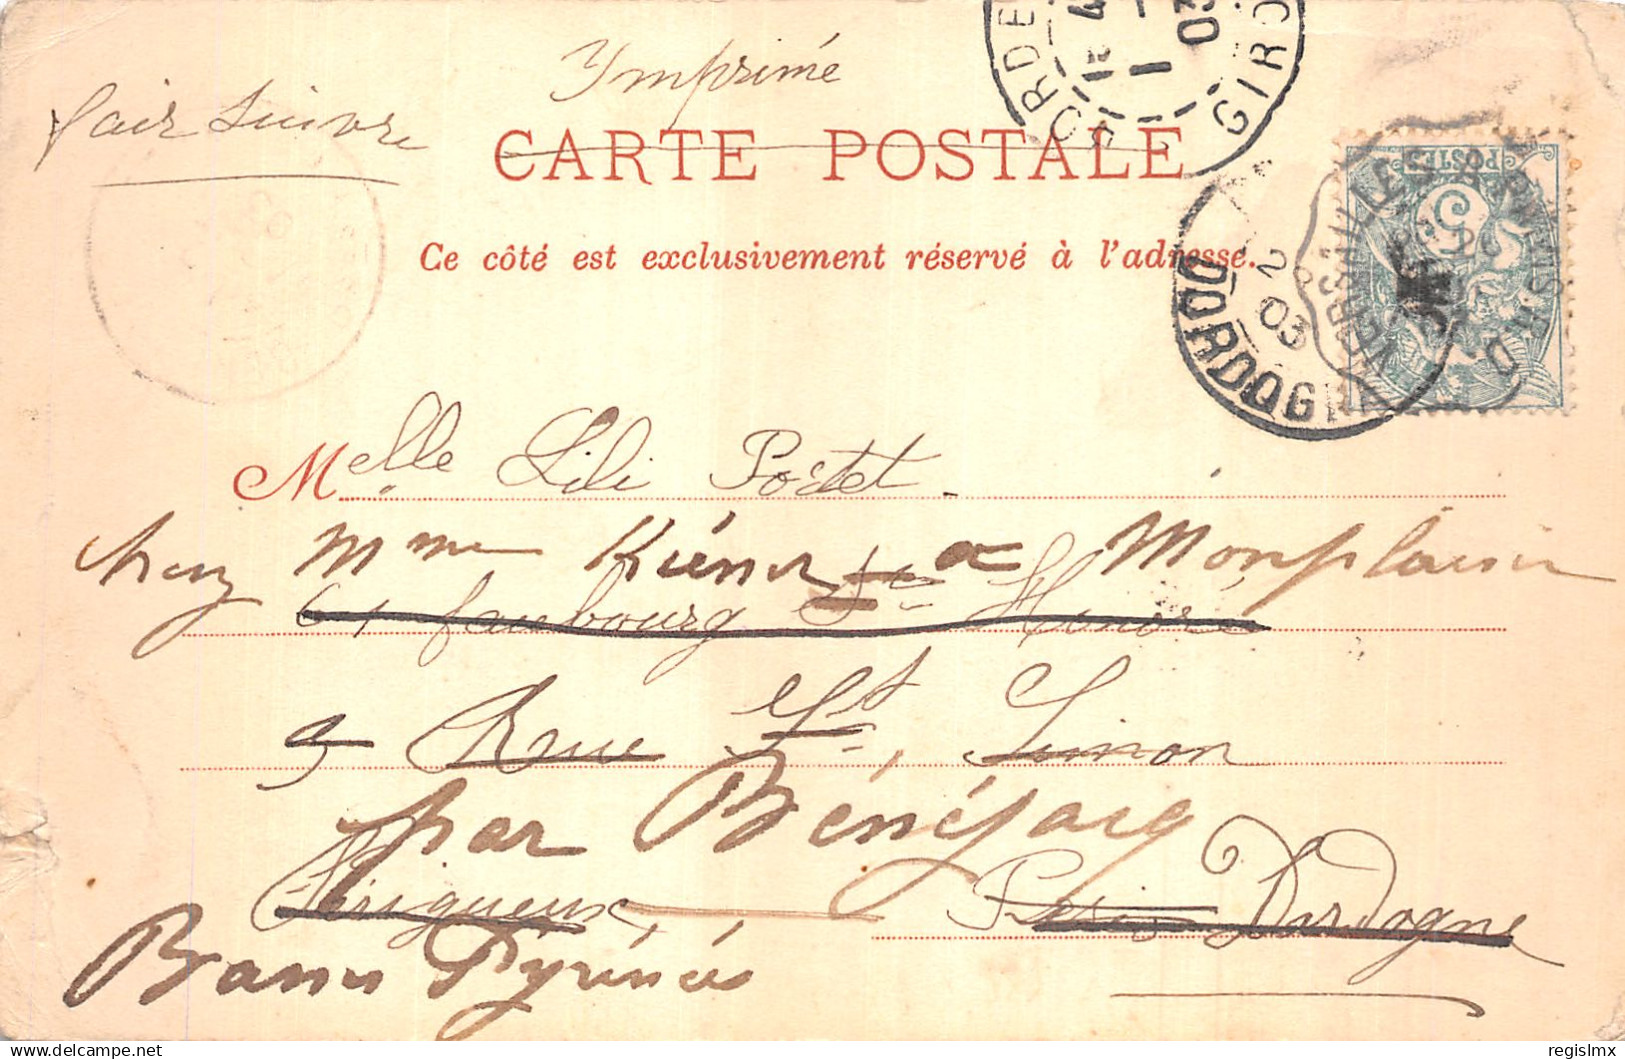 Imprimé
fair suivre
CARTE POSTALE
Ce côté est exclusivement réservé à l'adresse.
GIRO
03
02
03
DORDOGNE
VERSAILLES
POSTES
5
Melle Lili Postet
chez Mme Kiéner a Monplaisir
61 faubourg St Honoré
5 Rue St Simon
par Bénéjacq
Périgueux Paris Dordogne
Basses Pyrénées
delcampe.net
regislmx